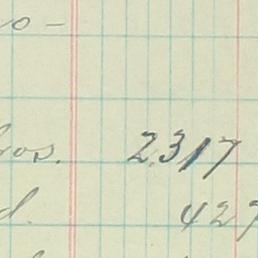 ros. 2317
d. 427